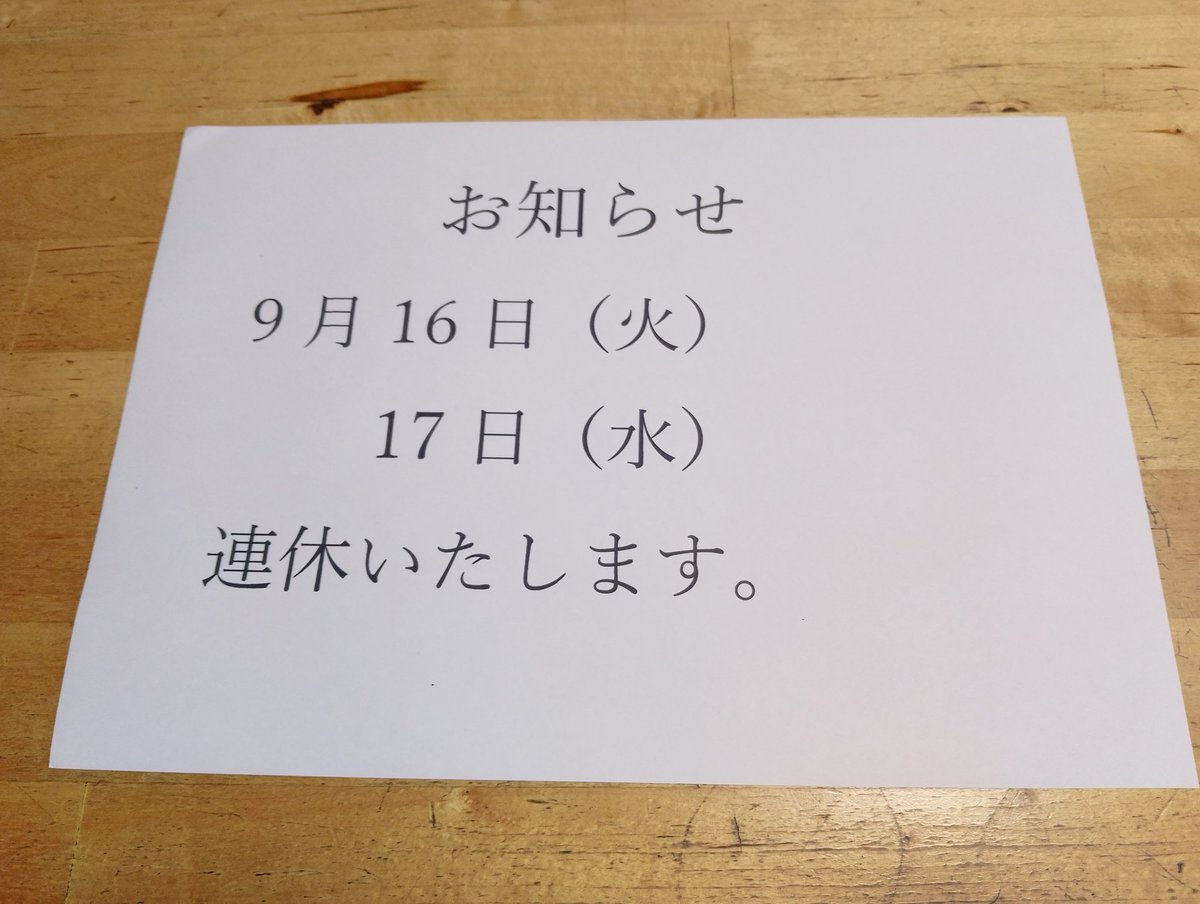 お知らせ
9月16日（火）
17日（水）
連休いたします。